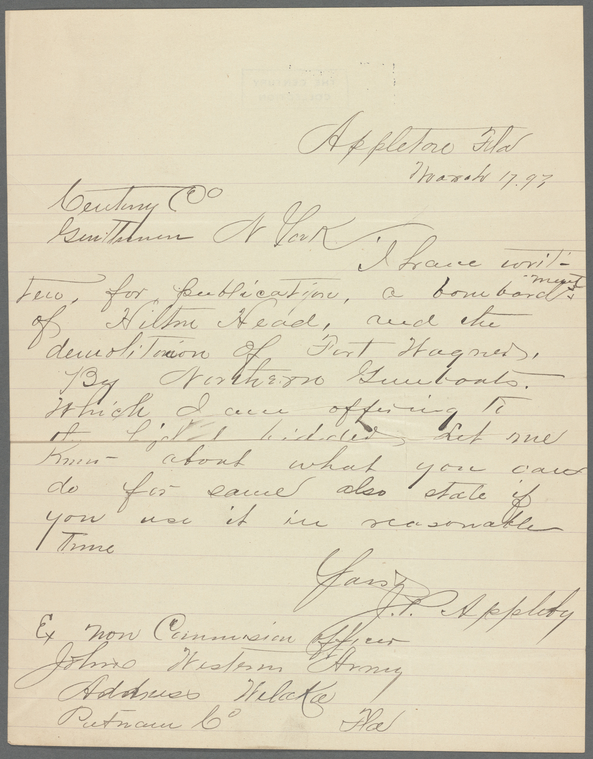 Appleton Fla
March 17. 97
Century Co
Gentlemen N York
I have writ-
ten, for publication, a bombardment
of Hilton Head, and the
demolition of Fort Wagner,
By Northern Gunboats.
Which I am offering to
the highest bidder, Let me
Know about what you can
do for same also state if
you use it in reasonable
time
Yours
J. P. Appleby
Ex non Commission officer
Johns Western Army
Address Welaka
Putnam Co Fla